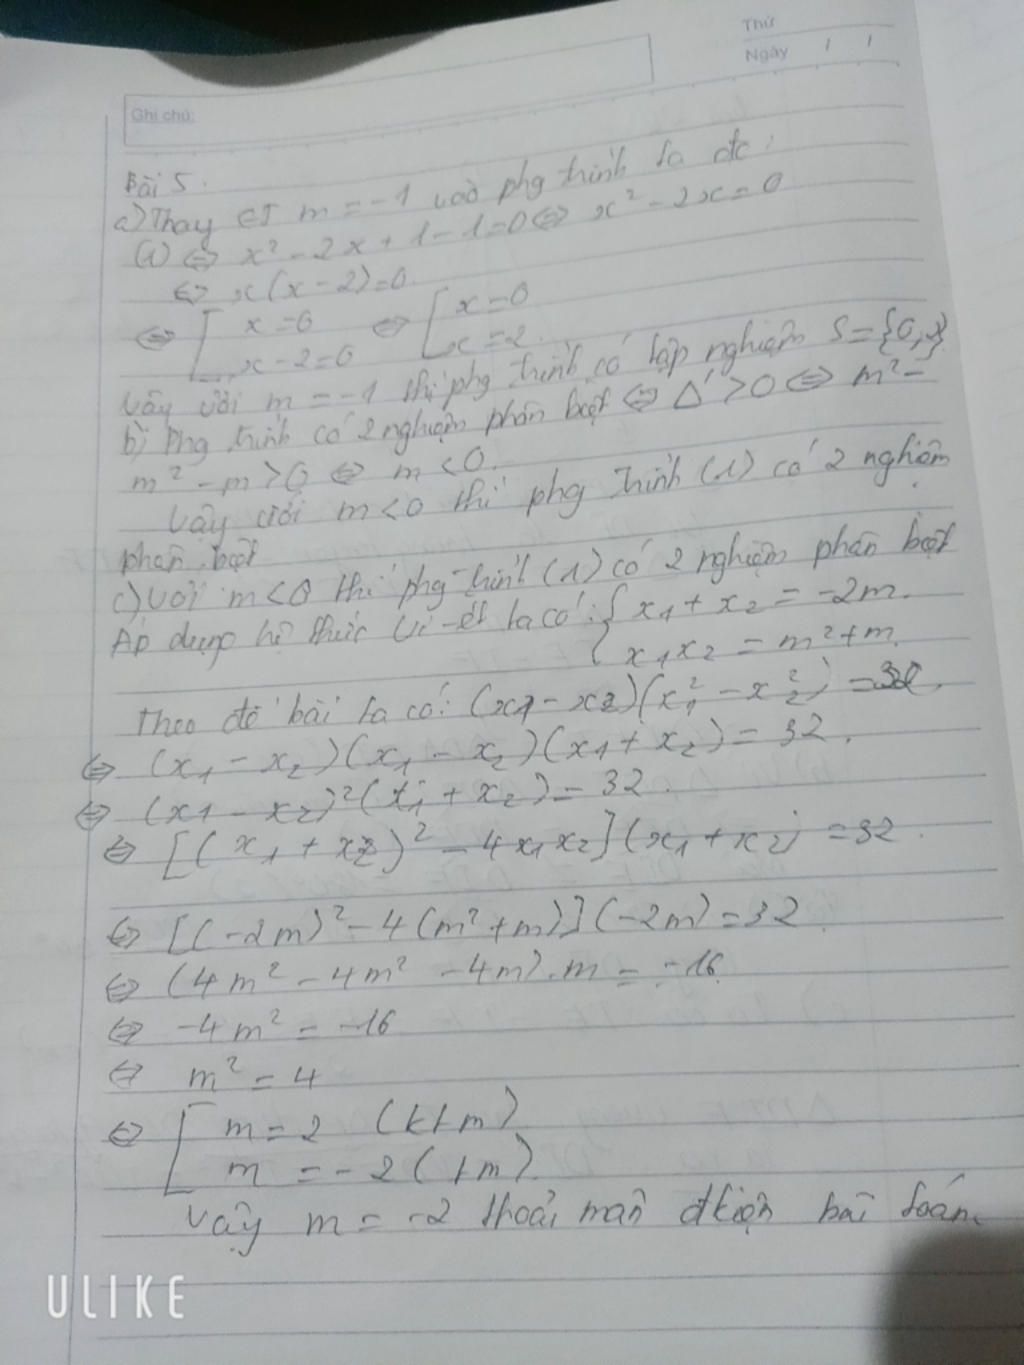 Thứ
Ngày / /
Ghi chú:
Bài 5.
a) Thay m = -1 vào phg trình ta đc:
(1) ⇔ x² - 2x + 1 - 1 = 0 ⇔ x² - 2x = 0
⇔ x(x - 2) = 0
⇔ [ x = 0 ⇔ [ x = 0
x - 2 = 0 x = 2.
Vậy với m = -1 thì phg trình có tập nghiệm S = {0, 2}
b) Phg trình có 2 nghiệm phân biệt ⇔ Δ' > 0 ⇔ m² -
m² - m > 0 ⇔ m < 0.
Vậy với m < 0 thì phg trình (1) có 2 nghiệm
phân biệt
c) Với m < 0 thì phg trình (1) có 2 nghiệm phân biệt
Áp dụng hệ thức Vi-ét ta có: { x₁ + x₂ = -2m.
x₁x₂ = m² + m.
Theo đề bài ta có: (x₁ - x₂)(x₁² - x₂²) = 32.
⇔ (x₁ - x₂)(x₁ - x₂)(x₁ + x₂) = 32.
⇔ (x₁ - x₂)²(x₁ + x₂) = 32.
⇔ [(x₁ + x₂)² - 4x₁x₂](x₁ + x₂) = 32.
⇔ [(-2m)² - 4(m² + m)](-2m) = 32
⇔ (4m² - 4m² - 4m).m = -16
⇔ -4m² = -16
⇔ m² = 4
⇔ [ m = 2 (ktm)
m = -2 (tm)
Vậy m = -2 thoải mãn đkiện bài toán.
ULIKE